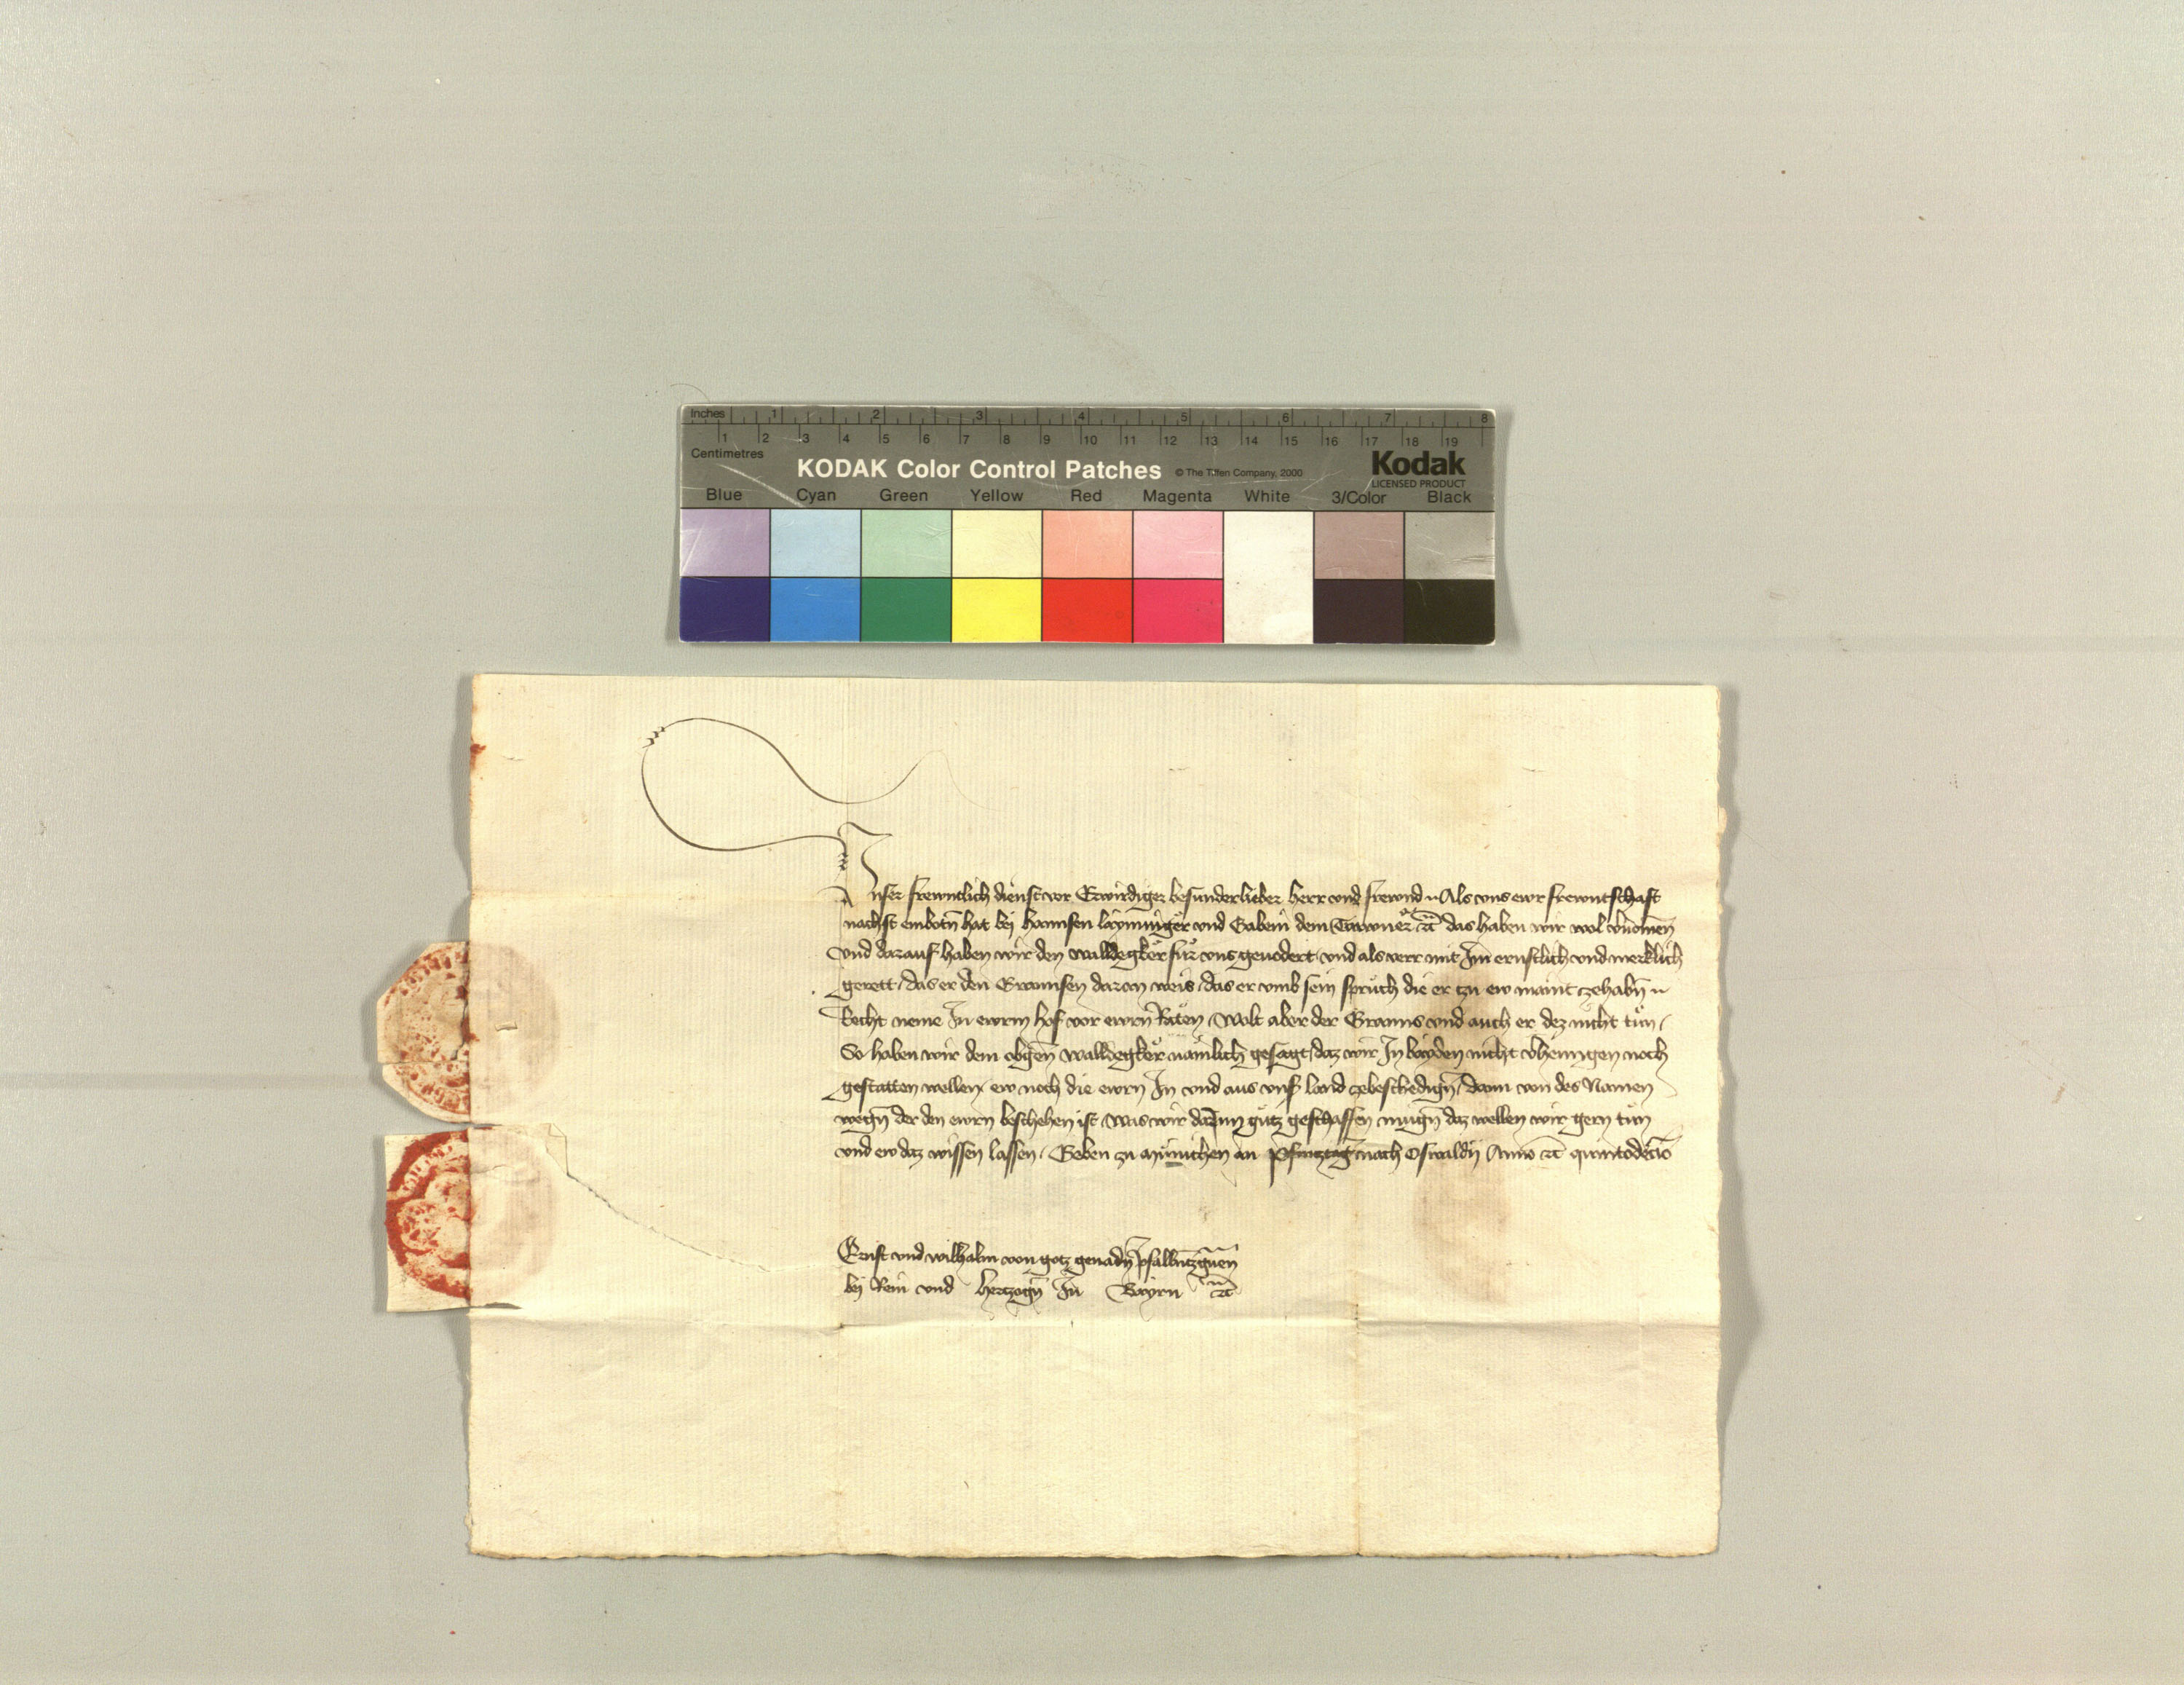 Inches 1 2 3 4 5 6 7 8
1 2 3 4 5 6 7 8 9 10 11 12 13 14 15 16 17 18 19
Centimetres
KODAK Color Control Patches © The Tiffen Company, 2000 Kodak
LICENSED PRODUCT
Blue Cyan Green Yellow Red Magenta White 3/Color Black
Vnser frewntlich dienst vor Erwirdiger besunderlieber herr vnd frewnd Als vns ewr frewntschaft
nachst embotn̄ hat bei hannsen layminger vnd Gabein dem das haben wir wol vernomen̄
vnd darauf haben wir den walldegker fur vns geuodert vnd als verr mit Im ernstlich vnd merklich
gerett / das er den Grannsen daran weis / das er vmb sein sprüch die er zu ew maint zehabn̄
Recht neme In ewrm hof vor ewrn Räten / Wolt aber der Granns vnd auch er dez nicht tůn /
So haben wir dem obgen̄ walldegker nämlich gesagt / daz wir In bayden nicht v̄hengen noch
gestatten wellen / ew noch die ewrn In vnd aus vnsr̄ land zebeschedign̄ / dann von des Namen
wegn̄ der den ewrn beschehen ist / Was wir darinn gůtz geschaffen mugn̄ daz wellen wir gern tůn
vnd ew daz wissen lassen / Geben zu München an Pfintztag nach Oswaldj Anno etc̄ quintodecīo
Ernst vnd wilhalm von gotz genadn̄ pfallntzgrauen
bej Rein vnd hertzogn̄ In Bayrn etc̄